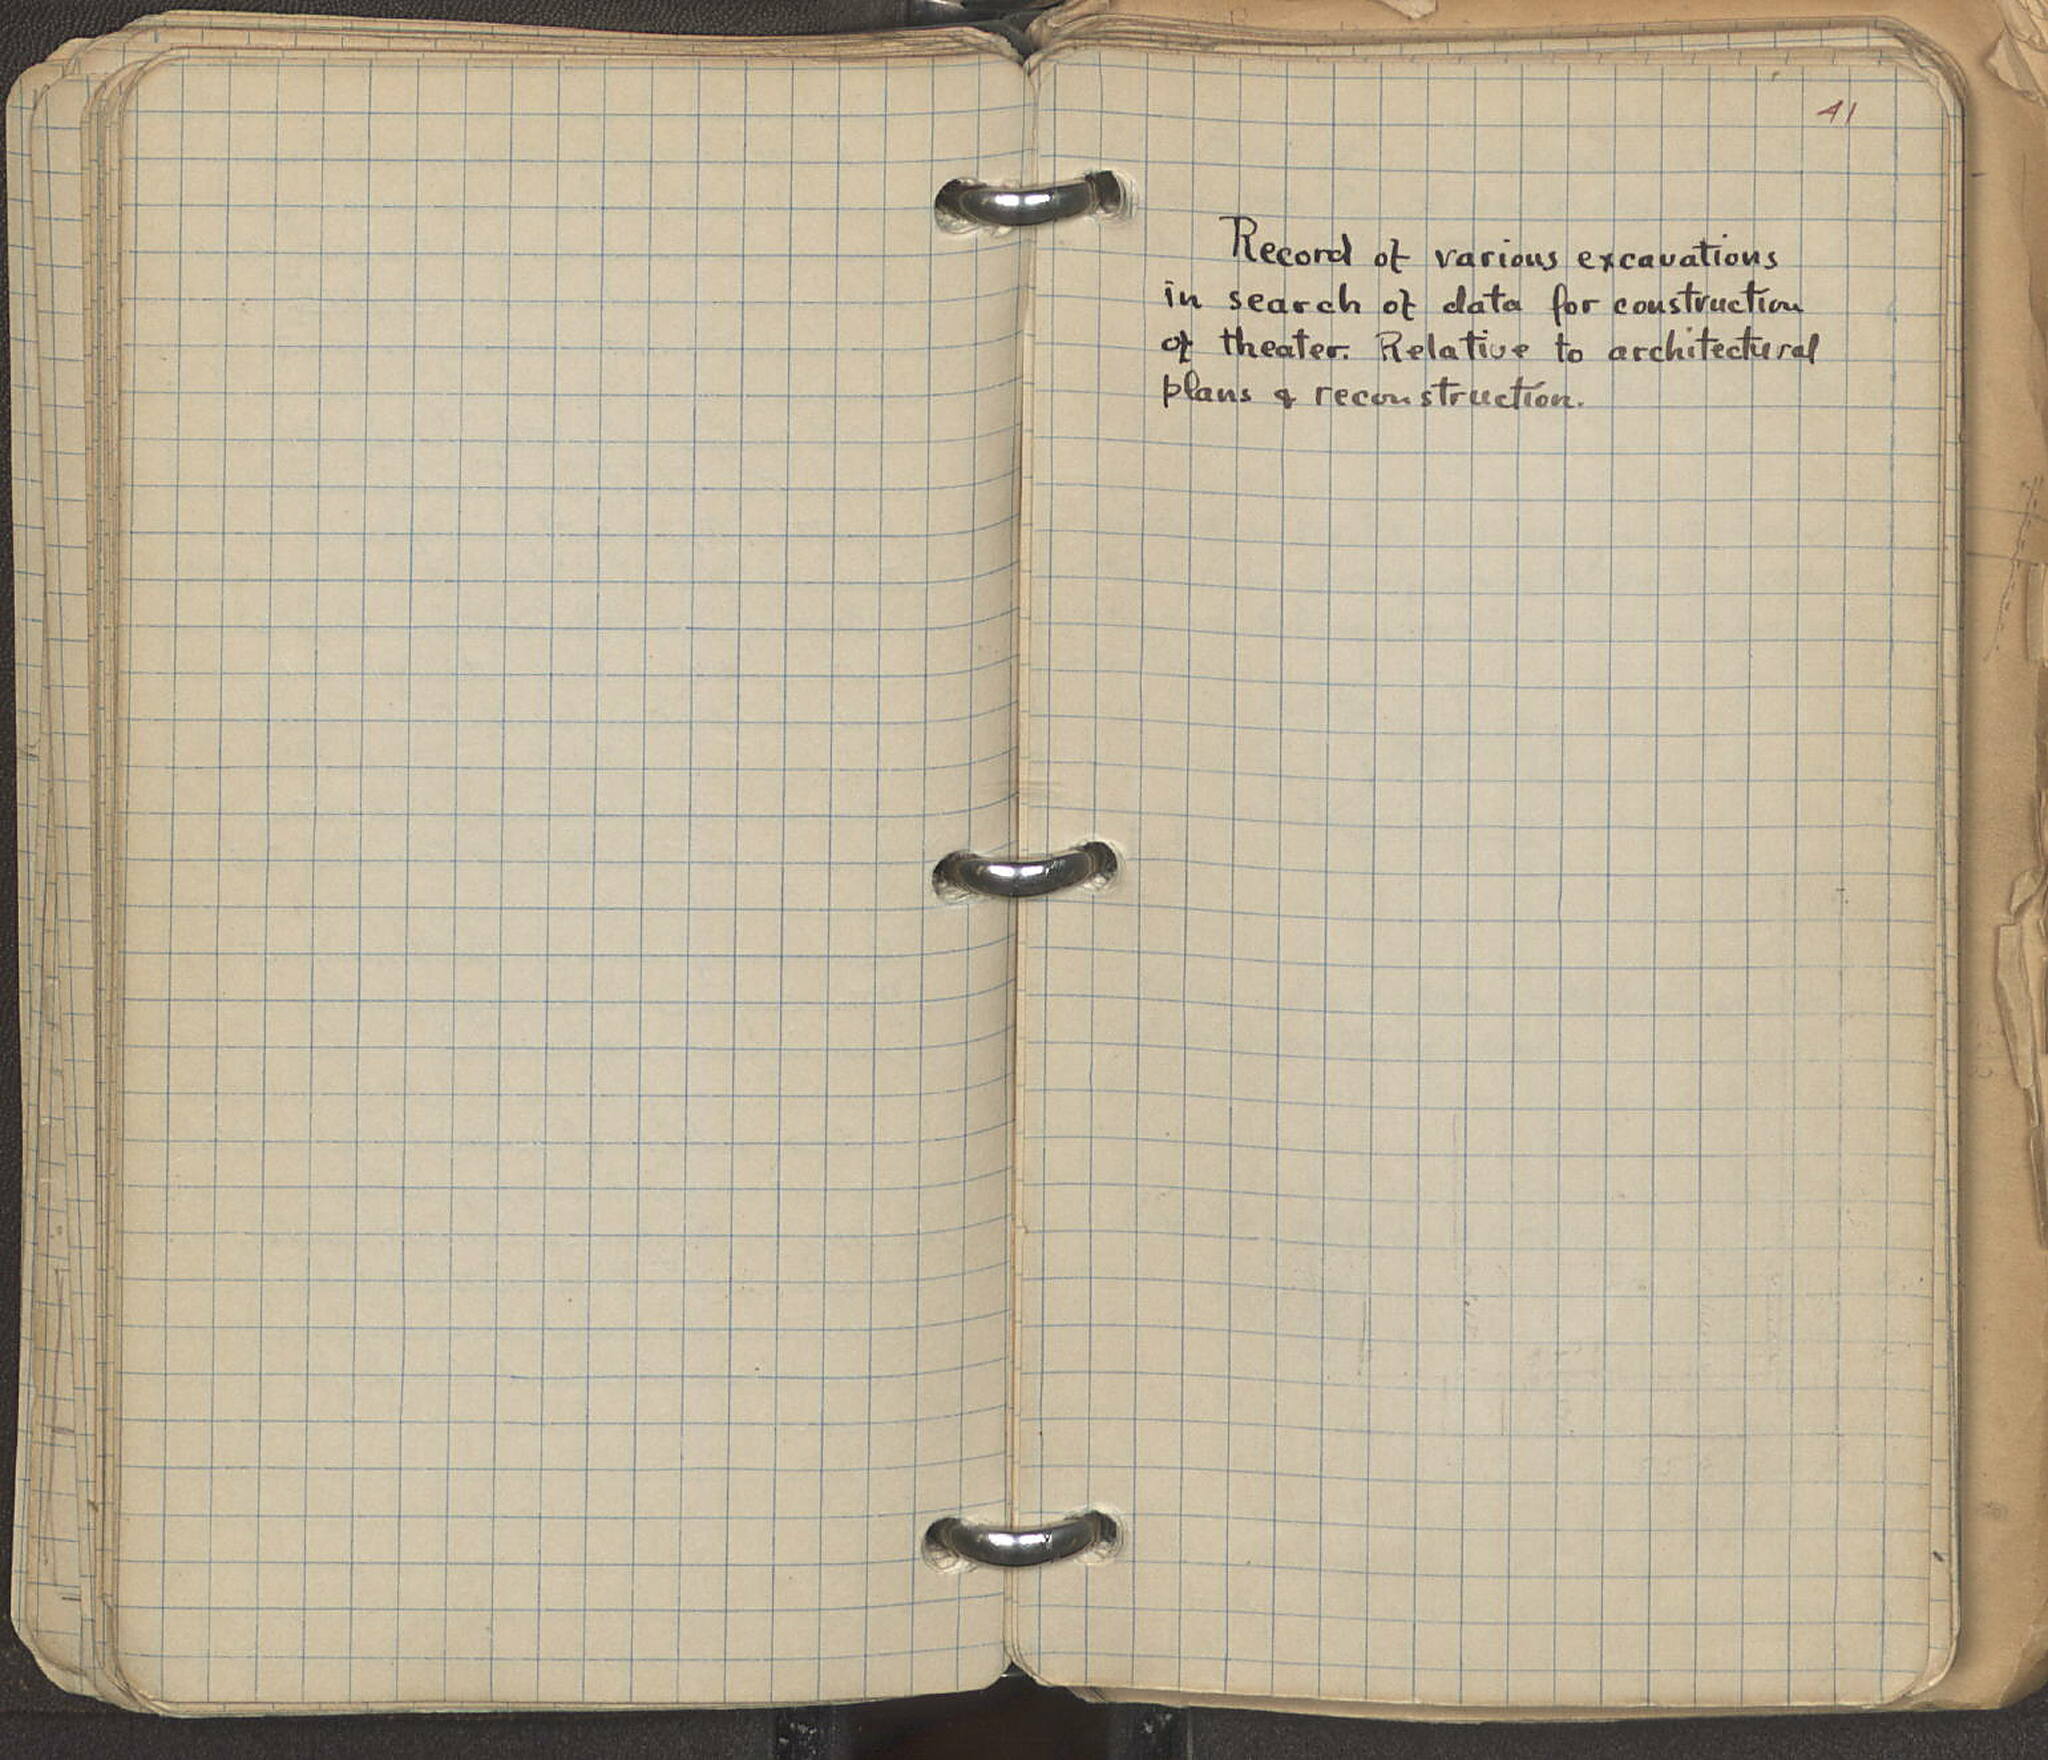 41
Record of various excavations
in search of data for construction
of theater. Relative to architectural
plans & reconstruction.